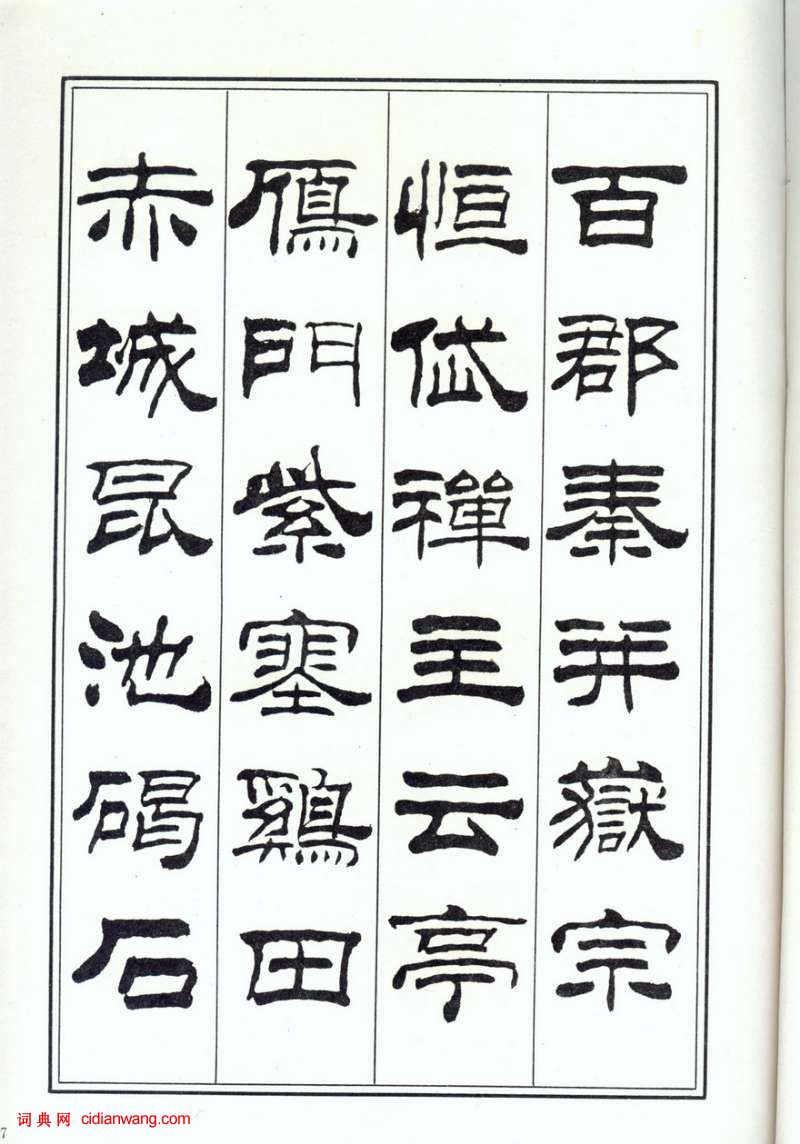 百郡秦并嶽宗
恒岱禪主云亭
鴈門紫塞鷄田
赤城昆池碣石
词典网 cidianwang.com
7